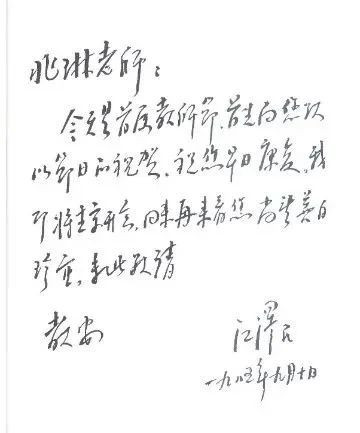 兆琳老师:
今天是首届教师節,首先向您致
以節日的祝贺,祝您早日康复,我
即将去京开会,回来再来看您尚望善自
珍重,专此敬请
教安
江泽民
一九八五年九月十日